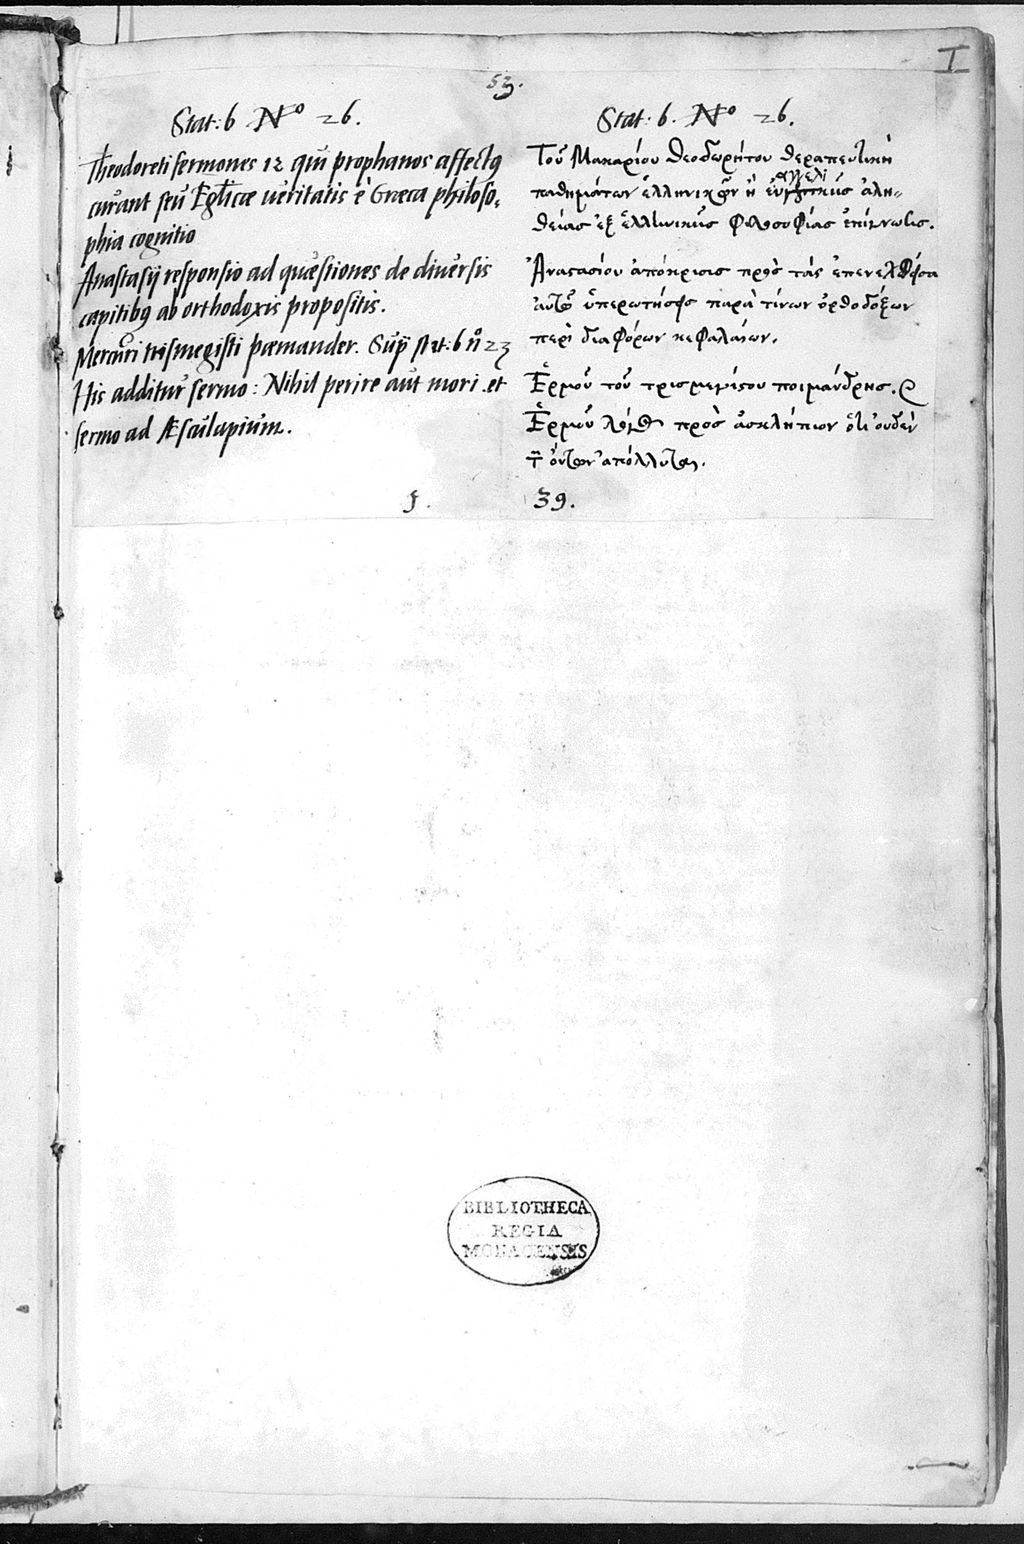 I
53.
Stat: 6 No 26.
Theodoreti sermones 12 qui prophanos affectus
curant seu Eglicæ veritatis è Græca philoso-
phia cognitio
Anastasij responsio ad quæstiones de diversis
capitibus ab orthodoxis propositis.
Mercuri trismegisti pæmander. Sup stat: 6 n 23
His additur sermo: Nihil perire aut mori. et
sermo ad Æsculapium.
Stat: 6. No 26.
Τοῦ Μακαρίου Θεοδωρήτου θεραπευτικὴ
παθημάτων ἑλληνικῶν ἢ αλη-
θείας ἐξ ἑλληνικῆς φιλοσοφίας ἐπίγνωσις.
Ἀναστασίου ἀπόκρισις πρὸς τὰς ἐπενεχθείσα
αὐτῷ ὑπερωτήσεις παρὰ τίνων ὀρθοδόξων
περὶ διαφόρων κεφαλαίων.
Ἑρμοῦ τοῦ τρισμεγίστου ποιμάνδρης.
Ἑρμοῦ λόγος πρὸς ἀσκλήπιον ὅτι οὐδὲν
τῶν ὄντων ἀπόλλυται.
1. 39.
BIBLIOTHECA
REGIA
MONACENSIS